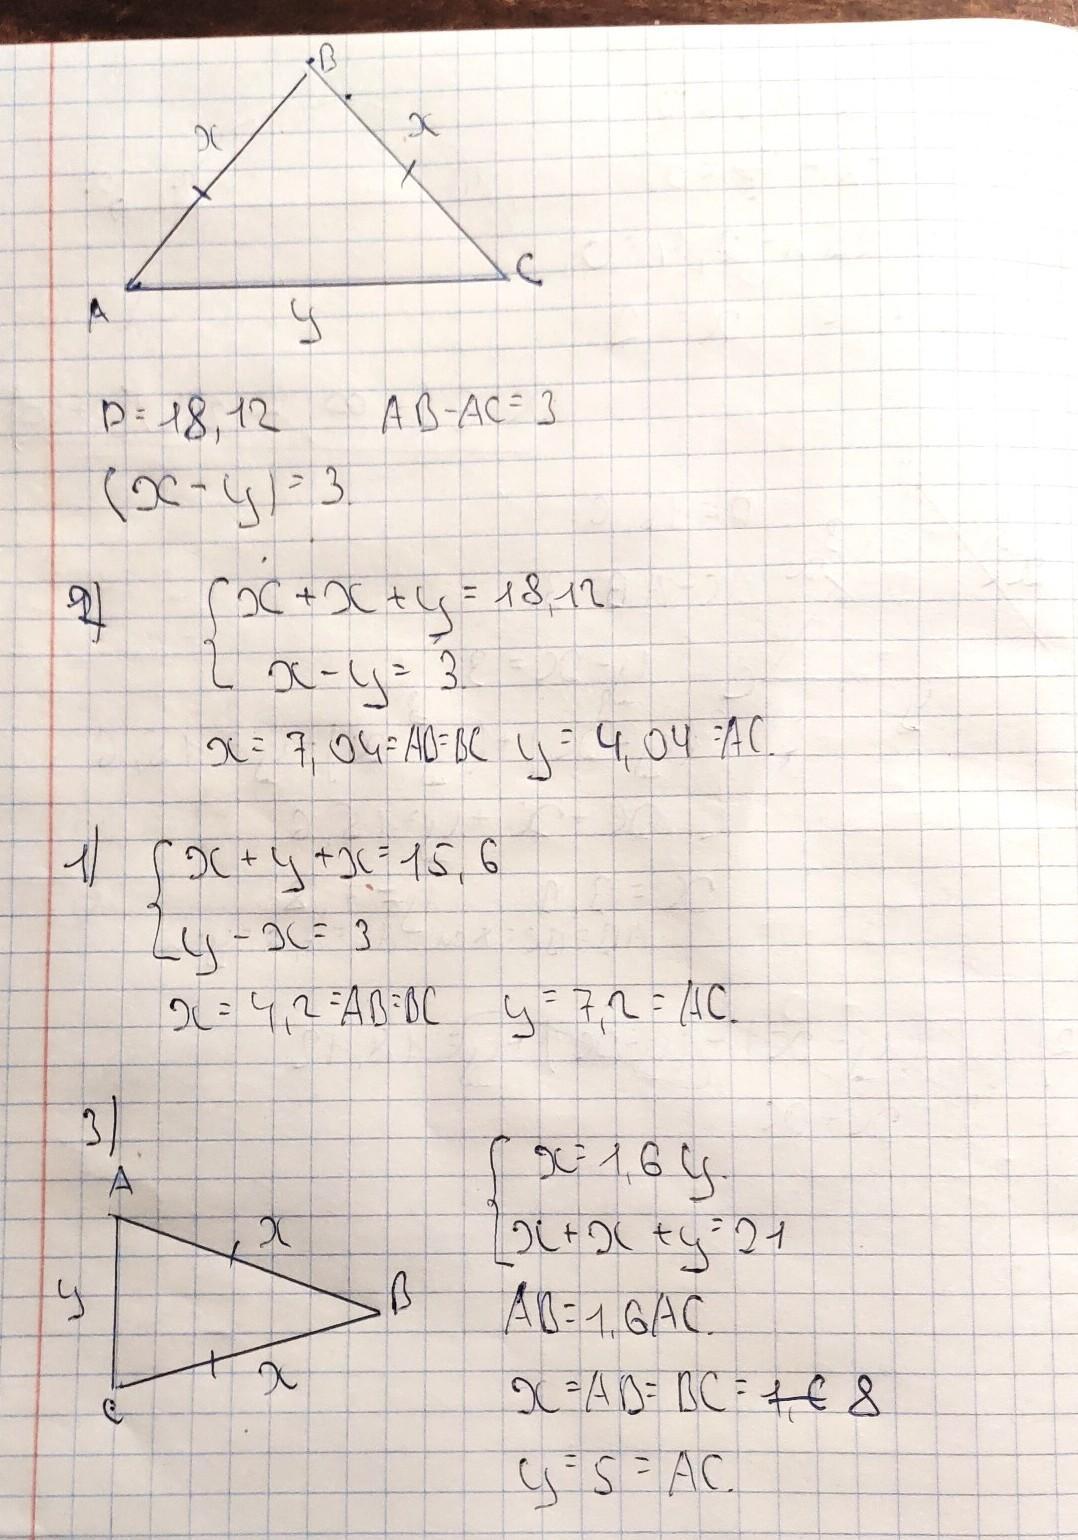 B
x x
A C
y
P = 18,12 AB - AC = 3
(x - y) = 3.
2) { x + x + y = 18,12
x - y = 3.
x = 7,04 = AB = BC y = 4,04 = AC.
1) { x + y + x = 15,6
y - x = 3
x = 4,2 = AB = BC y = 7,2 = AC.
3)
A
x
y B
x
C
{ x = 1,6 y.
x + x + y = 21
AB = 1,6 AC.
x = AB = BC = 8
y = 5 = AC.